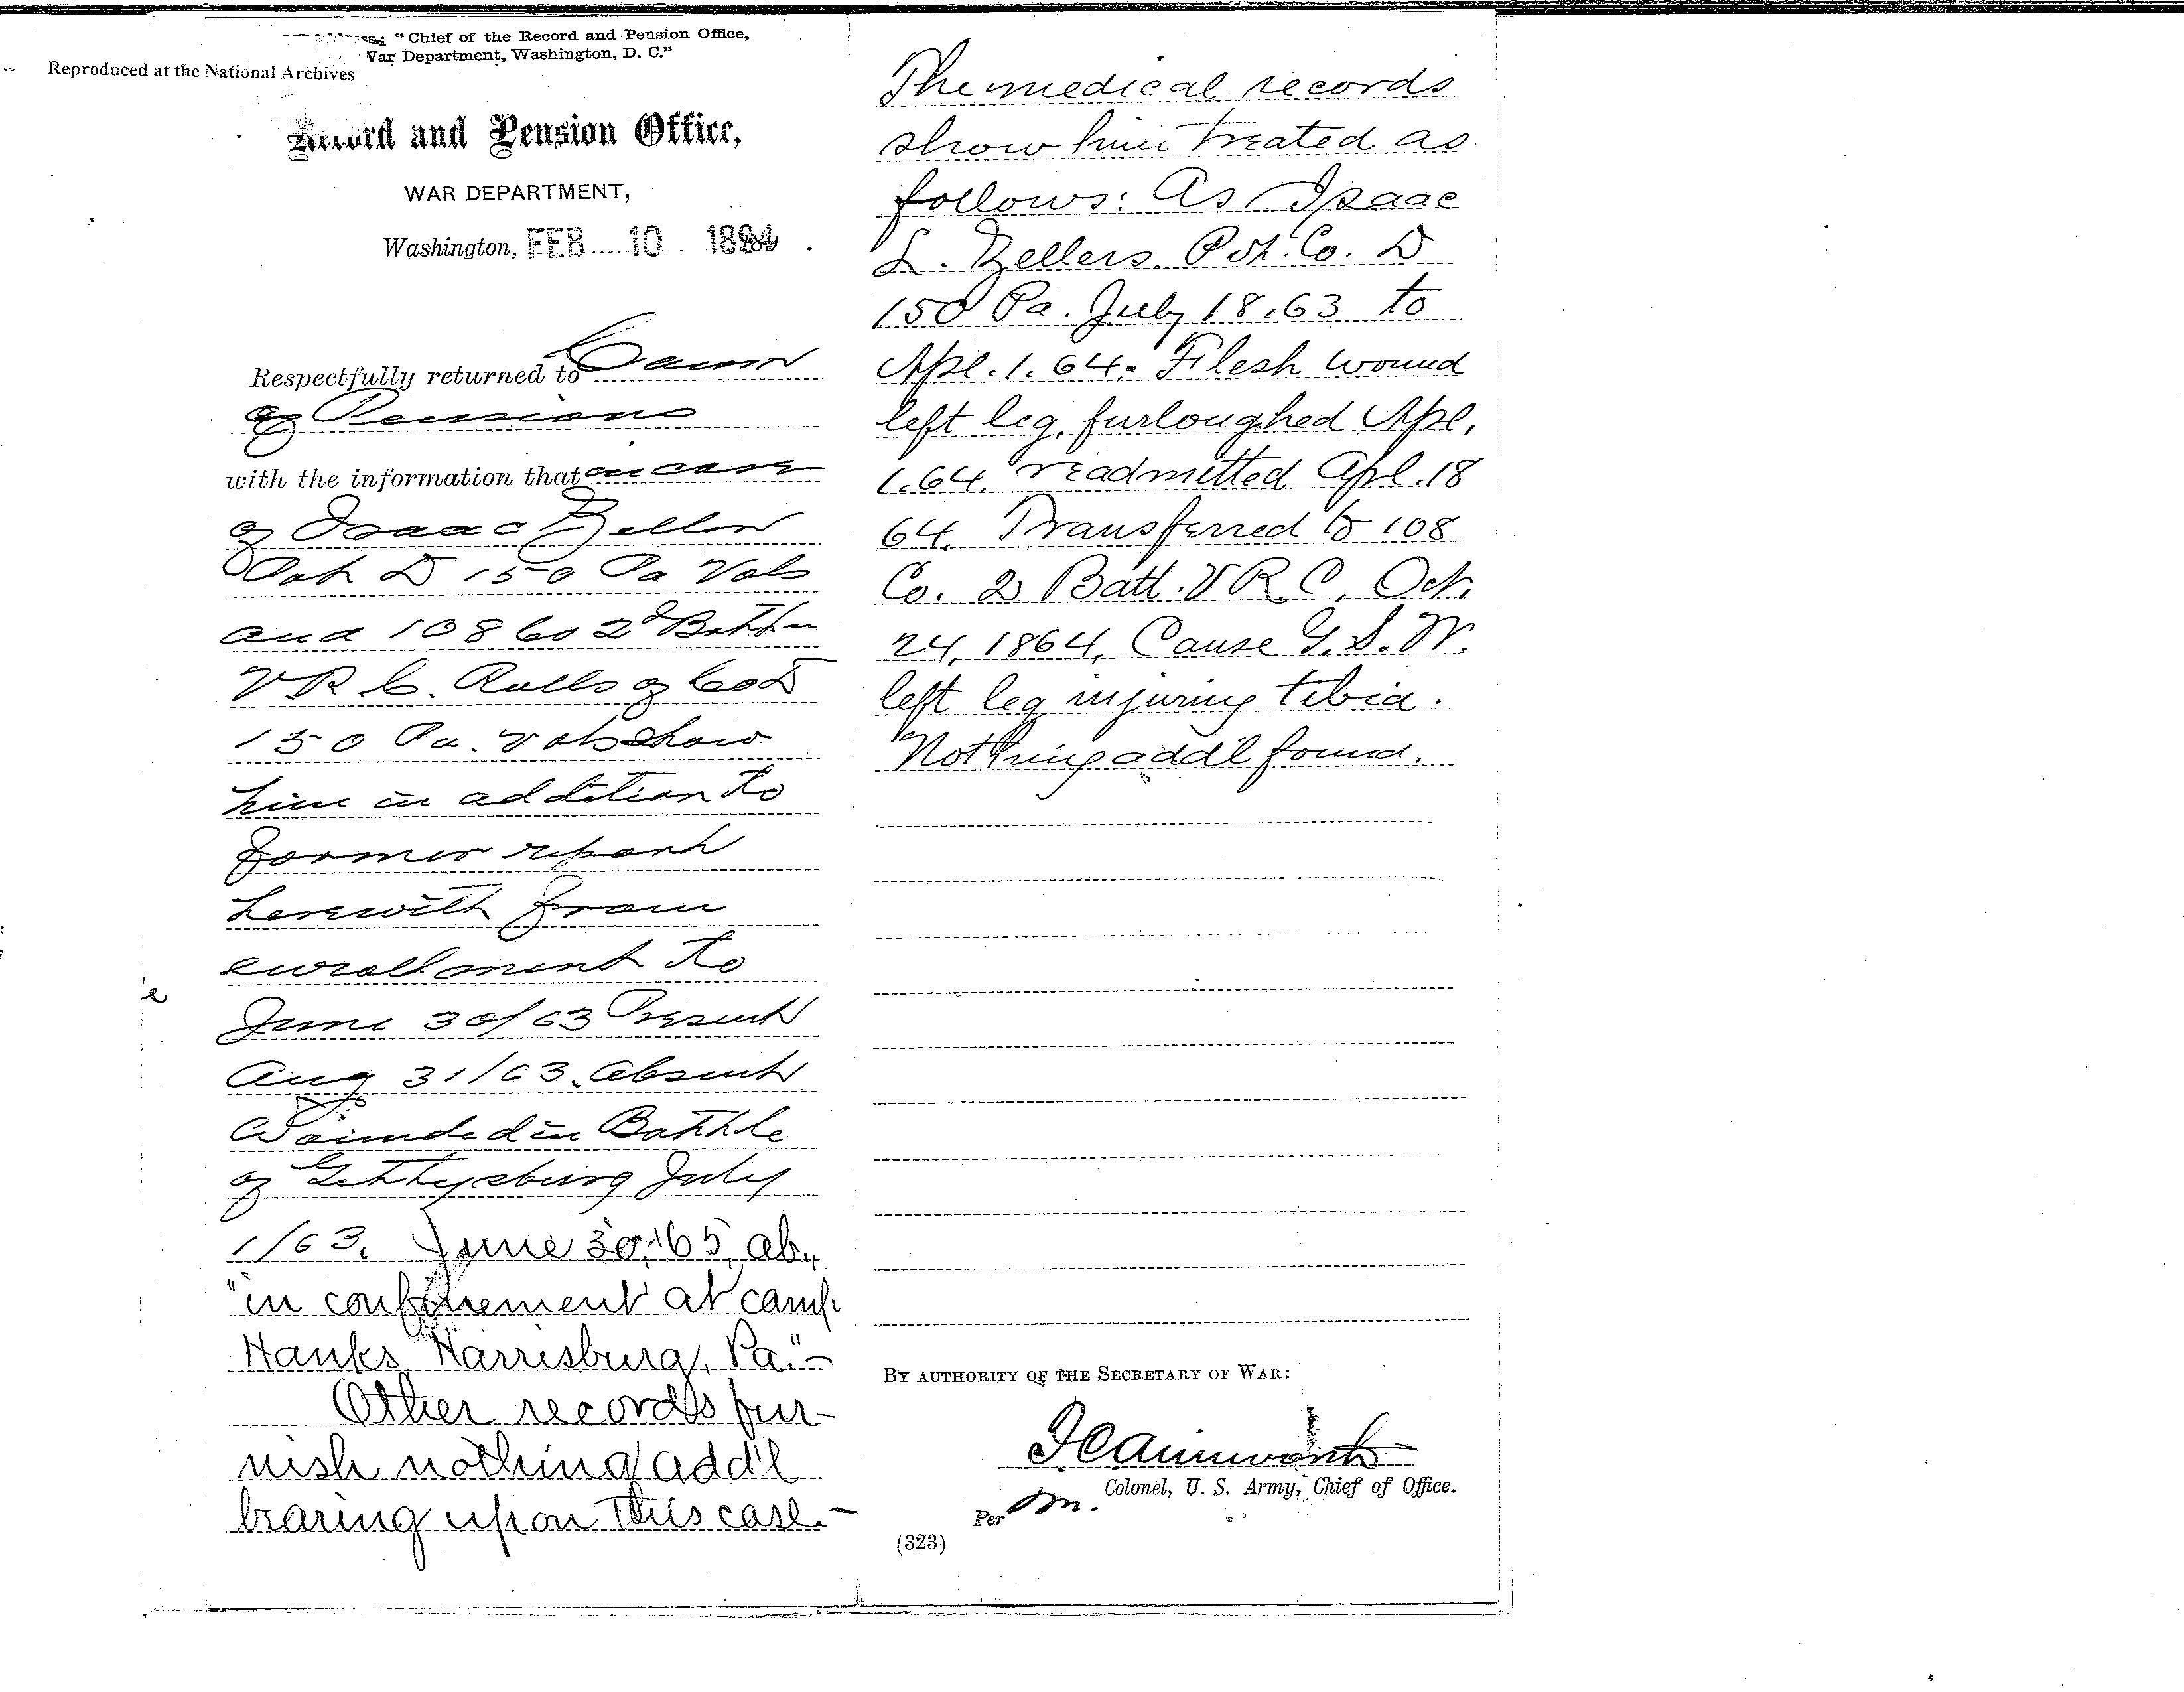 "Chief of the Record and Pension Office,
War Department, Washington, D. C."
Reproduced at the National Archives
Record and Pension Office,
WAR DEPARTMENT,
Washington, FEB 10 1894.
Respectfully returned to Comr
of Pensions
with the information that in case
of Isaac Zeller
Pvt D 150 Pa Vols
and 108 Co 2d Batt'n
V R C. Rolls of Co D
150 Pa. Vols show
him in addition to
former report
herewith from
enrollment to
June 30/63 Present
Aug 31/63. absent
Wounded in Battle
of Gettysburg July
1/63. June 30, '65, ab.,
"in confinement at camp
Hanks Harrisburg, Pa."-
Other records fur-
nish nothing add'l
bearing upon this case.-
The medical records
show him treated as
follows: As Isaac
L. Zellers. Pvt. Co. D
150 Pa. July 18.63 to
Apl. 1. 64. Flesh wound
left leg, furloughed Apl.
1.64. readmitted Apl. 18
64. Transferred to 108
Co. 2 Batt. V R. C. Oct.
24, 1864, Cause G. S. W.
left leg injuring tibia.
Nothing add'l found.
BY AUTHORITY OF THE SECRETARY OF WAR:
F C Ainsworth
Colonel, U. S. Army, Chief of Office.
Per m.
(323)